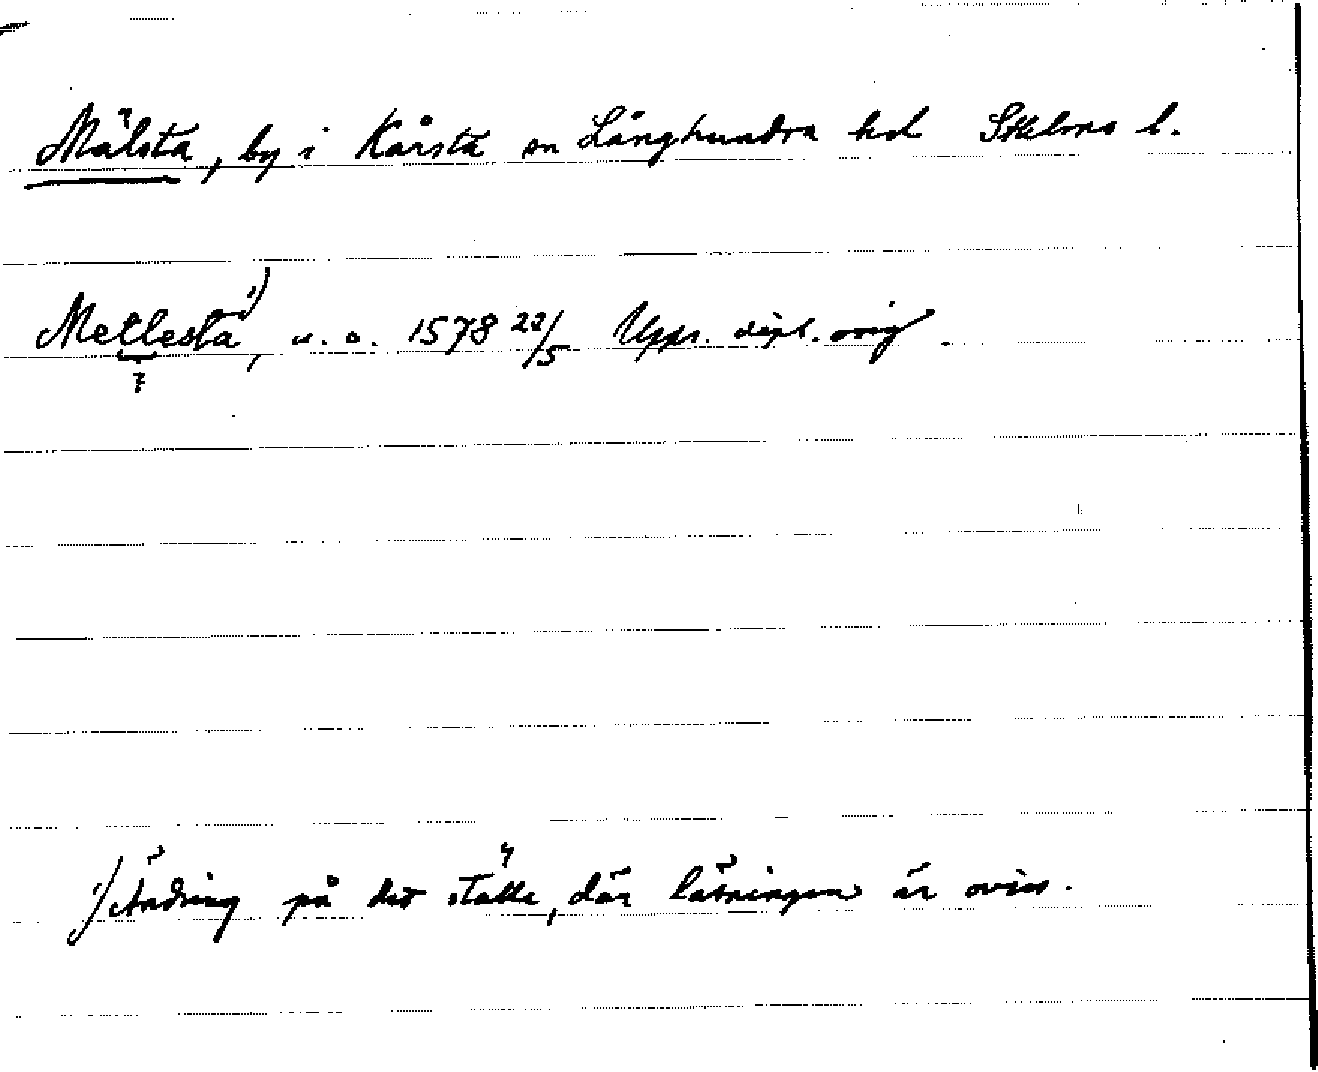 Mälsta, by i Kårsta sn Långhundra hd Sthlms l.
Mellesta¹), u. o. 1578 22/5 Upps. dipl. orig.
?
¹) Ändring på det ställe, där läsningen är oviss.